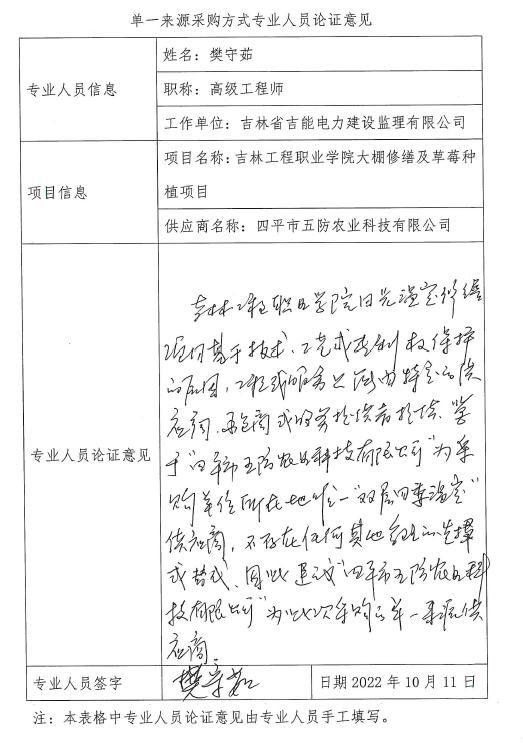 单一来源采购方式专业人员论证意见
专业人员信息
姓名：樊守茹
职称：高级工程师
工作单位：吉林省吉能电力建设监理有限公司
项目信息
项目名称：吉林工程职业学院大棚修缮及草莓种
植项目
供应商名称：四平市五防农业科技有限公司
专业人员论证意见
吉林工程职业学院日光温室修缮
项目基于技术、工艺或专利权保护
的原因，工程或服务只能由特定的供
应商、承包商或服务提供者提供。鉴
于"四平市五防农业科技有限公司"为采
购单位所在地唯一"双层四季温室"
供应商，不存在任何其他合理的选择
或替代，因此建议"四平市五防农业科
技有限公司"为此次采购的单一来源供
应商。
专业人员签字
樊守茹
日期 2022 年 10 月 11 日
注：本表格中专业人员论证意见由专业人员手工填写。